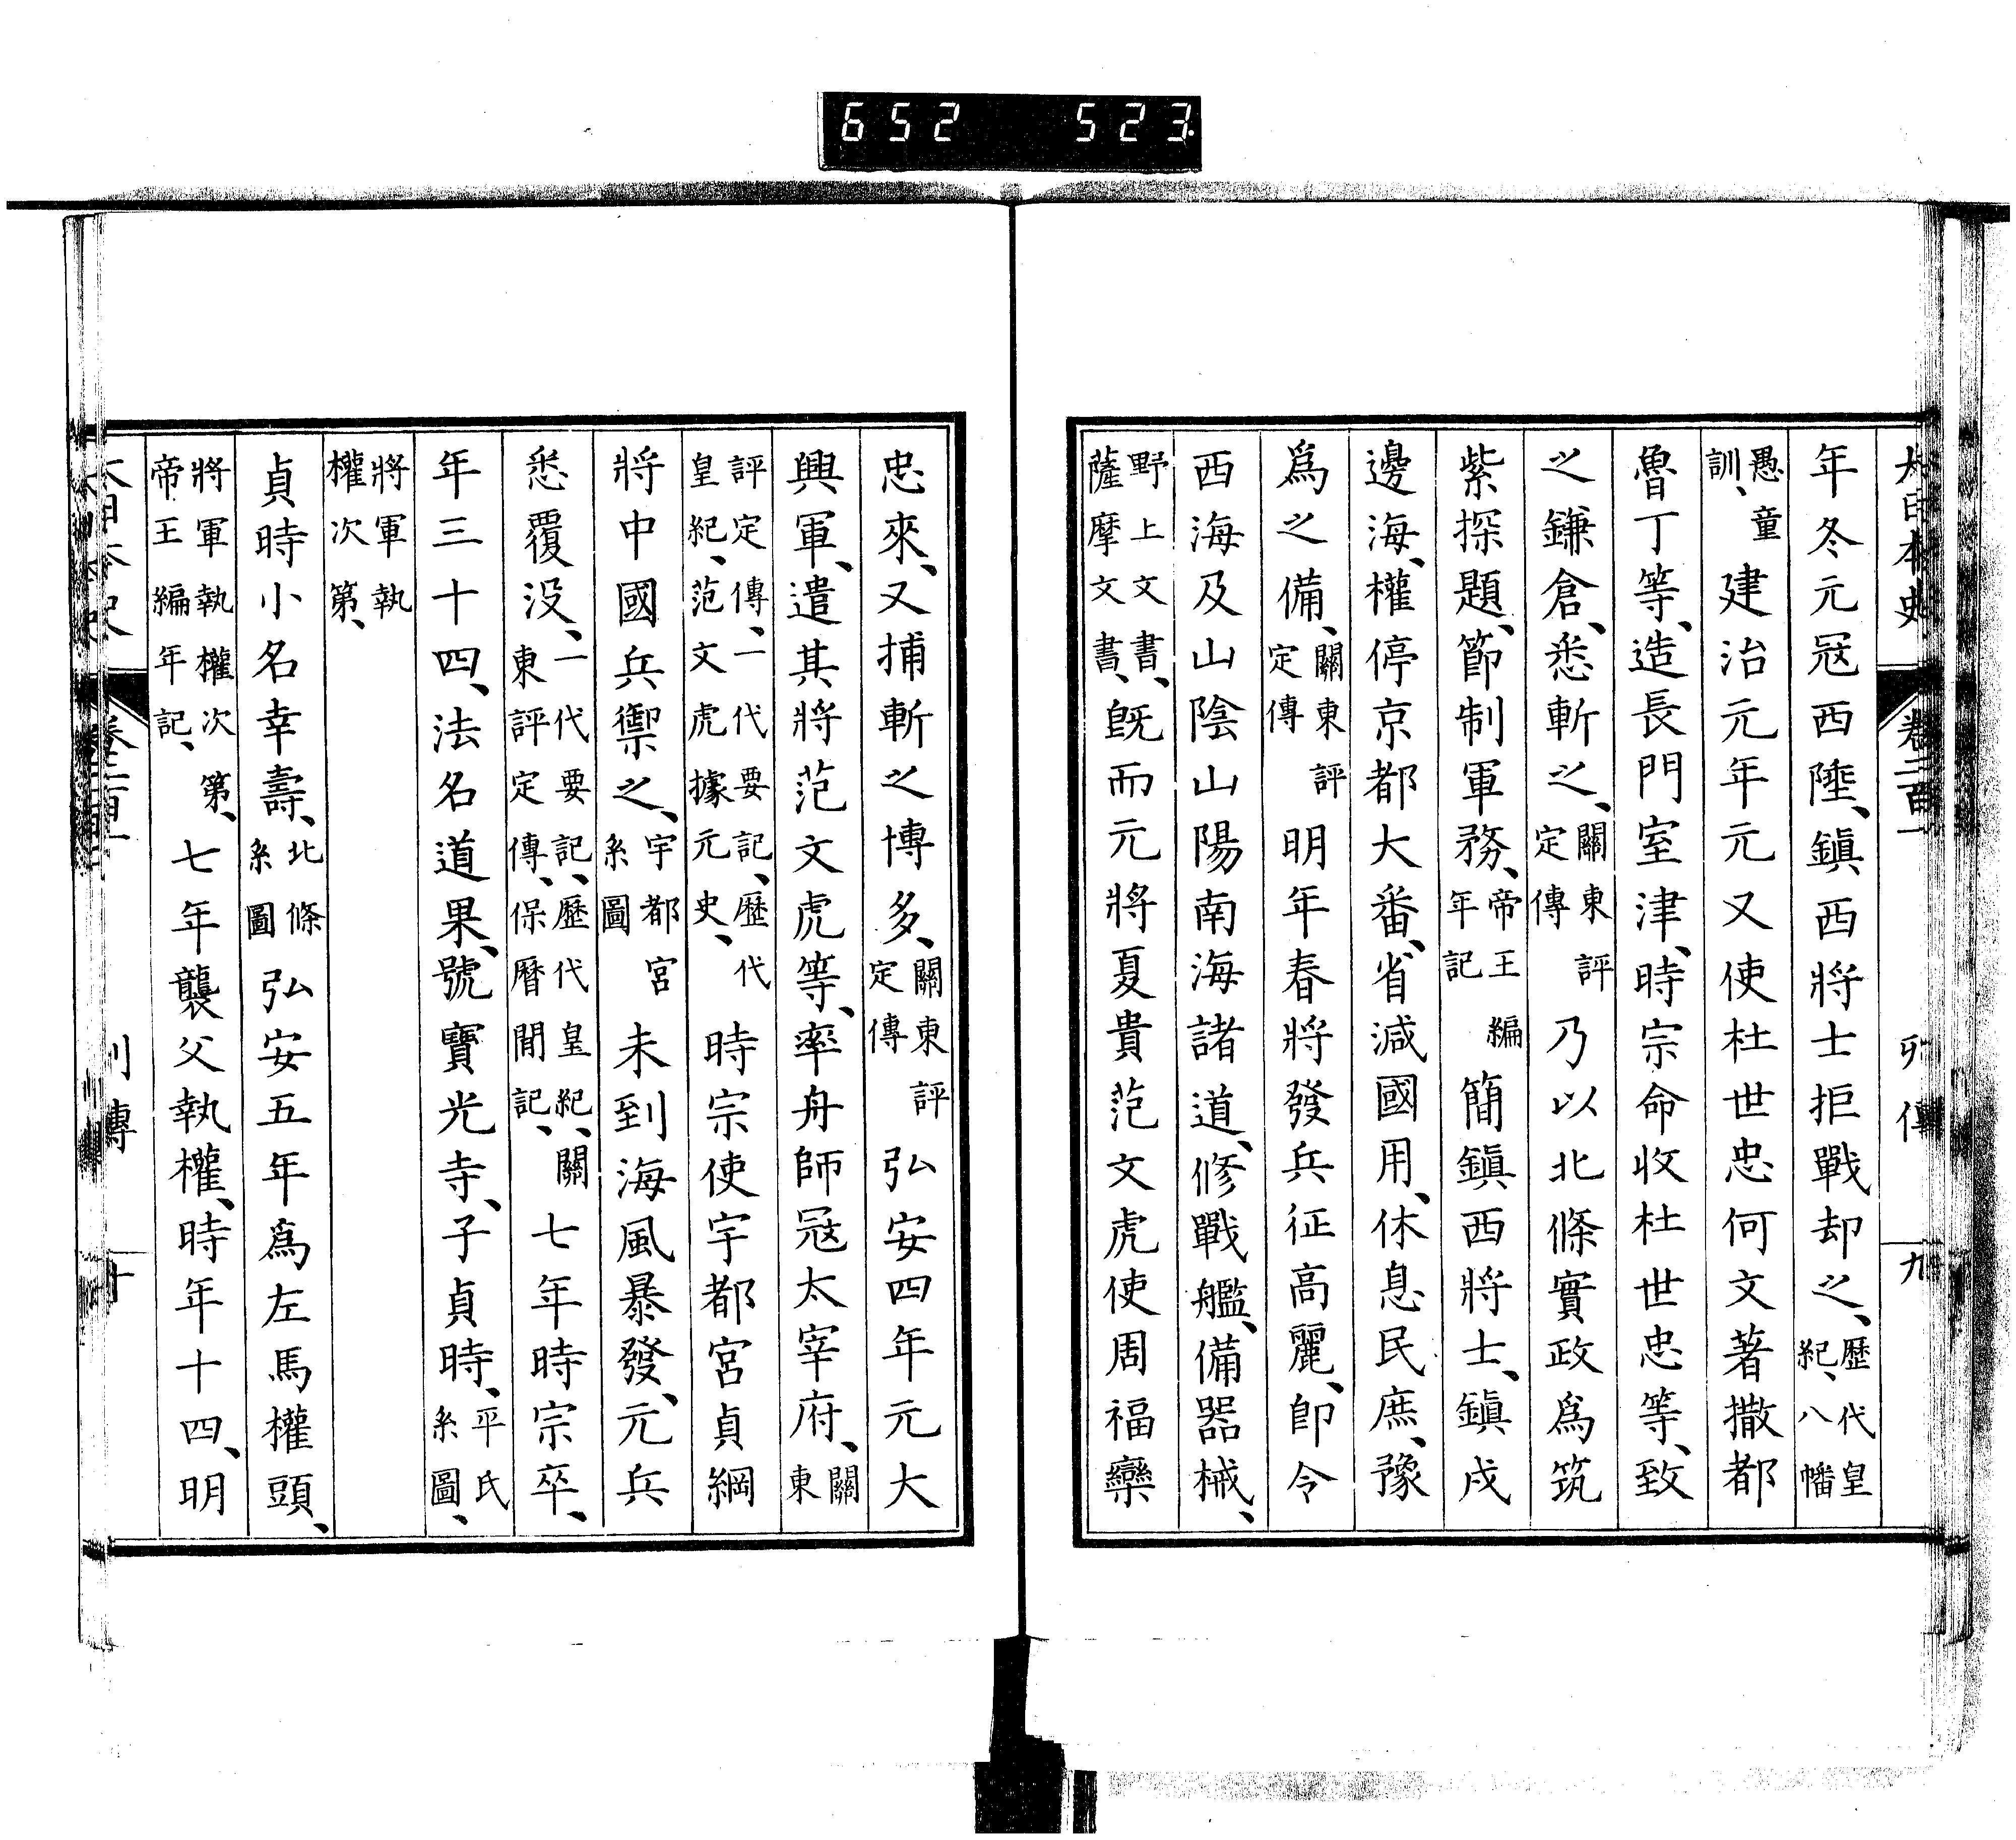 652 523
大日本史 卷二百一 列傳 九
年冬元冦西陲、鎮西將士拒戰却之、歷代皇紀、八幡
愚童訓、建治元年元又使杜世忠何文著撒都
魯丁等、造長門室津、時宗命收杜世忠等、致
之鎌倉、悉斬之、關東評定傳乃以北條實政爲筑
紫探題、節制軍務、帝王編年記簡鎮西將士、鎮戍
邊海、權停京都大番、省減國用、休息民庶、豫
爲之備、關東評定傳明年春將發兵征高麗、卽令
西海及山陰山陽南海諸道、修戰艦、備器械、
野上文書、薩摩文書、旣而元將夏貴范文虎使周福欒
忠來、又捕斬之博多、關東評定傳弘安四年元大
興軍、遣其將范文虎等、率舟師冦太宰府、關東
評定傳、一代要記、歷代皇紀、范文虎據元史、時宗使宇都宮貞綱
將中國兵禦之、宇都宮系圖未到海風暴發、元兵
悉覆没、一代要記、歷代皇紀、關東評定傳、保曆間記、七年時宗卒、
年三十四、法名道果、號寶光寺、子貞時、平氏系圖、
將軍執權次第、
貞時小名幸壽、北條系圖弘安五年爲左馬權頭、
將軍執權次第、帝王編年記、七年襲父執權、時年十四、明
大日本史 列傳 十